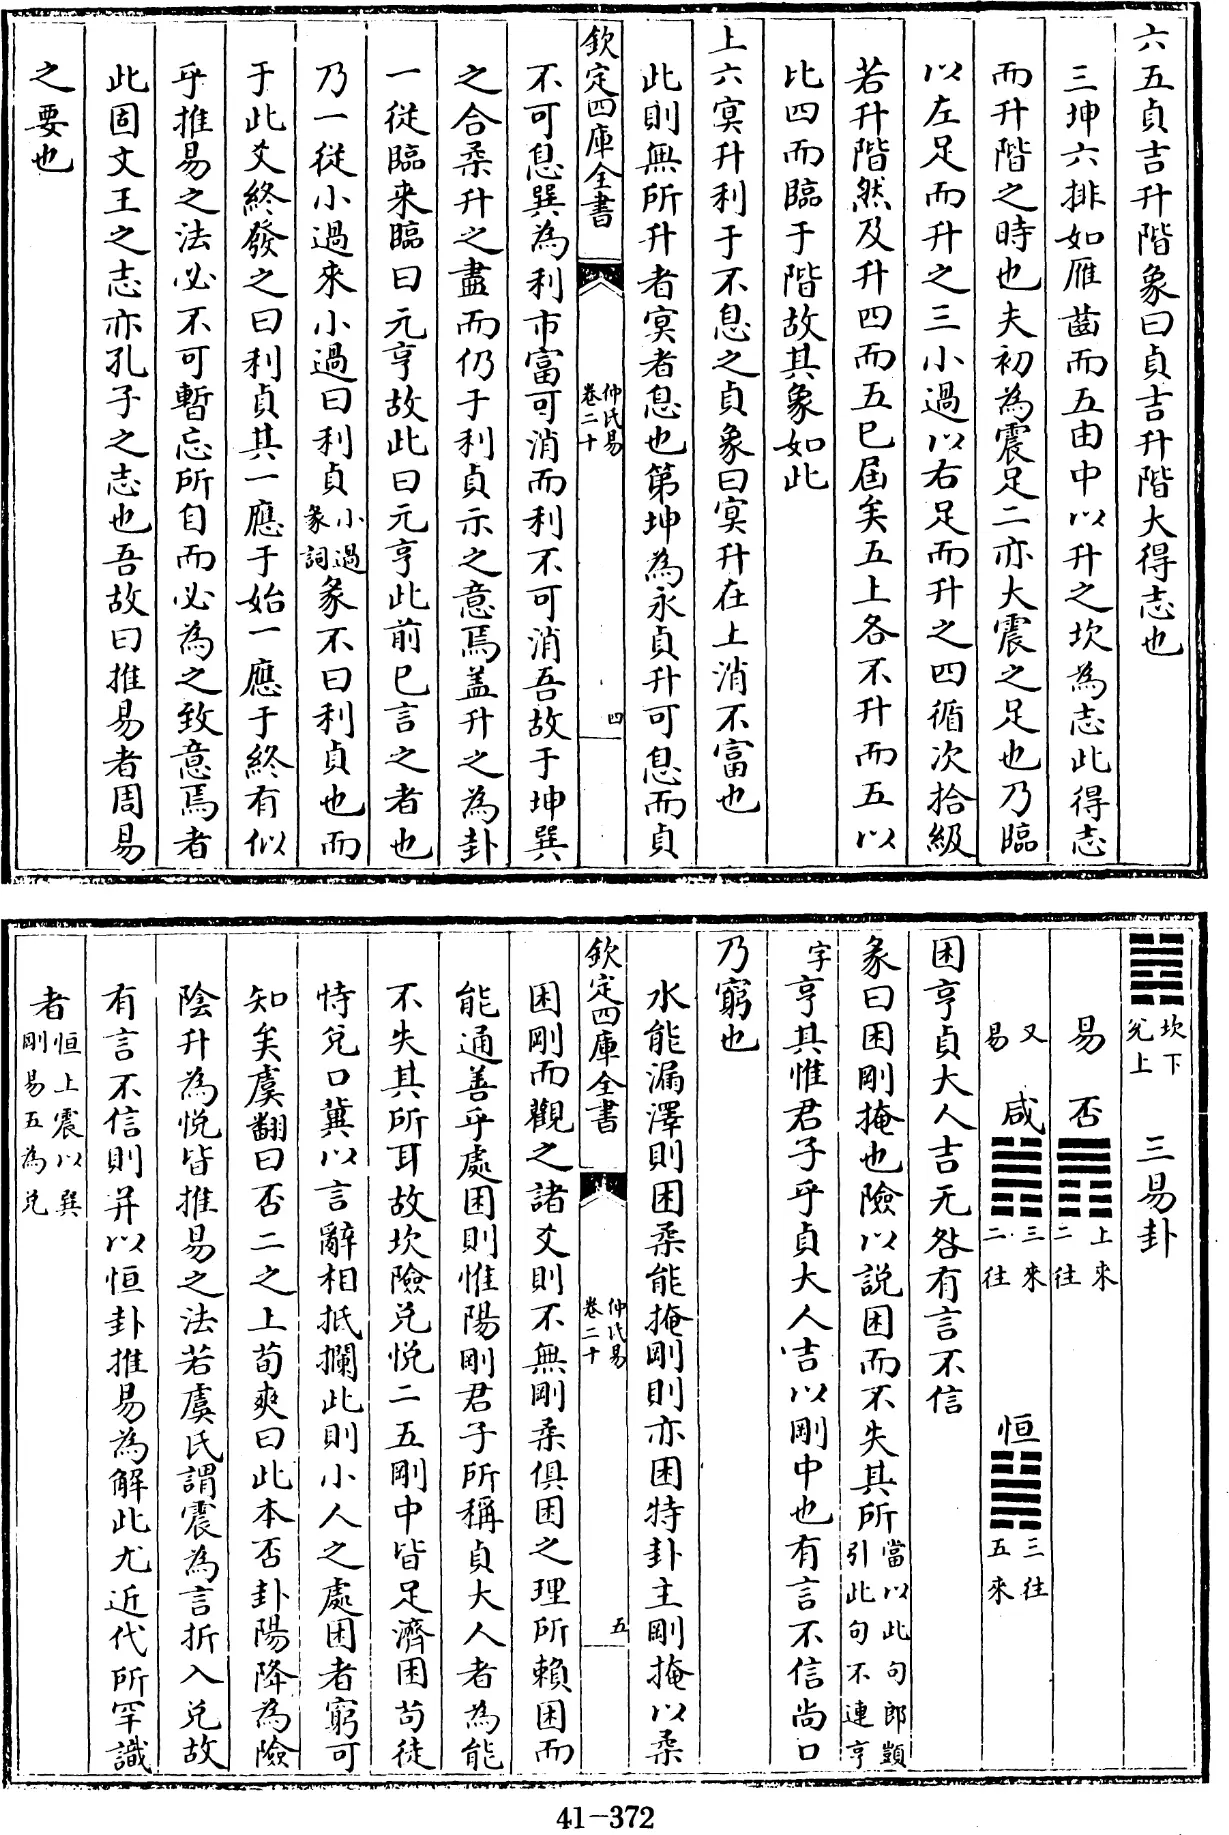 六五貞吉升階象曰貞吉升階大得志也
三坤六排如雁齒而五由中以升之坎為志此得志
而升階之時也夫初為震足二亦大震之足也乃臨
以左足而升之三小過以右足而升之四循次拾級
若升階然及升四而五已屆矣五上各不升而五以
比四而臨于階故其象如此
上六冥升利于不息之貞象曰冥升在上消不富也
此則無所升者冥者息也第坤為永貞升可息而貞
欽定四庫全書
仲氏易
卷二十
四
不可息巽為利市富可消而利不可消吾故于坤巽
之合柔升之盡而仍于利貞示之意焉盖升之為卦
一從臨来臨曰元亨故此曰元亨此前已言之者也
乃一從小過來小過曰利貞小過彖詞彖不曰利貞也而
于此爻終發之曰利貞其一應于始一應于終有似
乎推易之法必不可暫忘所自而必為之致意焉者
此固文王之志亦孔子之志也吾故曰推易者周易
之要也
䷮坎下兊上 三易卦
易 否䷋上來二往
又易 咸䷞三來二往 恒䷟三往五來
困亨貞大人吉无咎有言不信
彖曰困剛掩也險以說困而不失其所當以此句郎顗引此句不連亨
字亨其惟君子乎貞大人吉以剛中也有言不信尚口
乃窮也
水能漏澤則困柔能掩剛則亦困特卦主剛掩以柔
欽定四庫全書
仲氏易
卷二十
五
困剛而觀之諸爻則不無剛柔俱困之理所賴困而
能通善乎處困則惟陽剛君子所稱貞大人者為能
不失其所耳故坎險兑悦二五剛中皆足濟困苟徒
恃兑口冀以言辭相抵攔此則小人之處困者窮可
知矣虞翻曰否二之上荀爽曰此本否卦陽降為險
陰升為悦皆推易之法若虞氏謂震為言折入兑故
有言不信則并以恒卦推易為解此尤近代所罕識
者恒上震以巽剛易五為兑
41-372